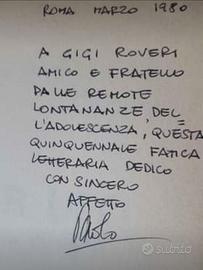 ROMA MARZO 1980
A GIGI ROVERI
AMICO E FRATELLO
DALLE REMOTE
LONTANANZE DEL=
L'ADOLESCENZA, QUESTA
QUINQUENNALE FATICA
LETTERARIA DEDICO
CON SINCERO
AFFETTO
Paolo
Subito